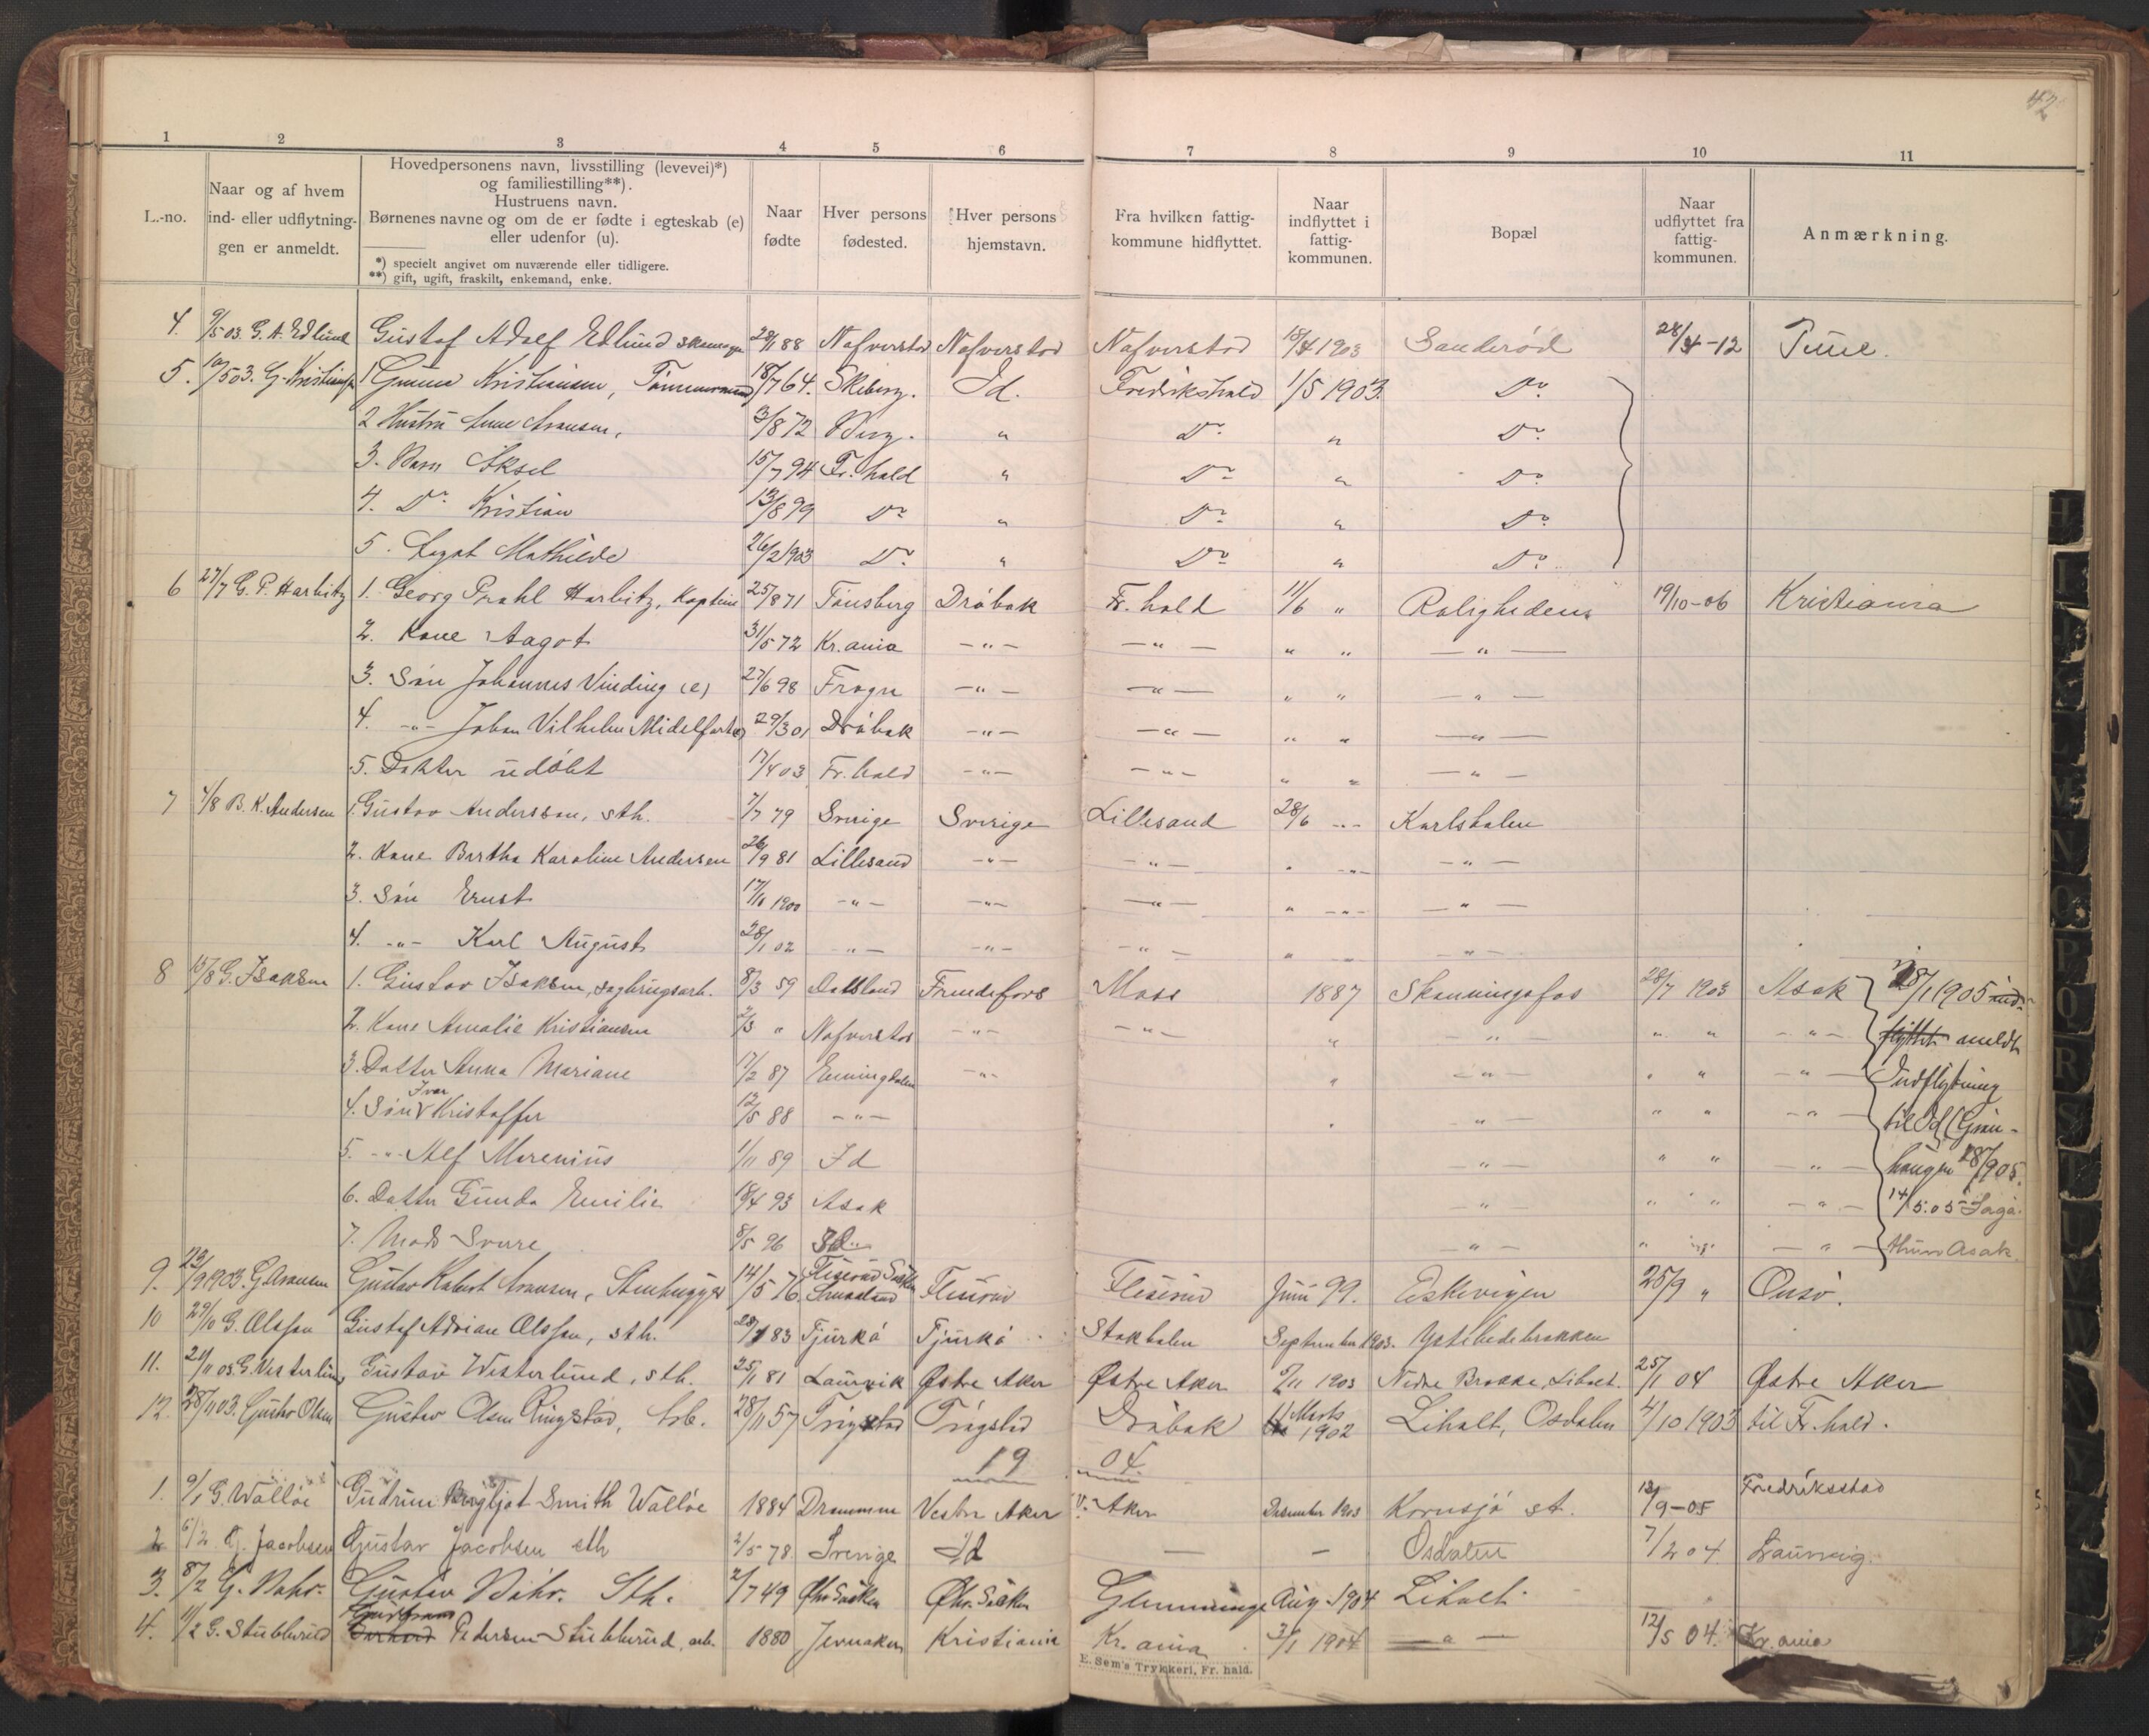 42
1 2 3 4 5 6 7 8 9 10 11
L.-no.
Naar og af hvem
ind- eller udflytnin-
gen er anmeldt.
Hovedpersonens navn, livsstilling (levevei)*)
og familiestilling**).
Hustruens navn.
Børnenes navne og om de er fødte i egteskab (e)
eller udenfor (u).
*) specielt angivet om nuværende eller tidligere.
**) gift, ugift, fraskilt, enkemand, enke.
Naar
fødte
Hver persons
fødested.
Hver persons
hjemstavn.
Fra hvilken fattig-
kommune hidflyttet.
Naar
indflyttet i
fattig-
kommunen.
Bopæl
Naar
udflyttet fra
fattig-
kommunen.
Anmærkning.
4. 9/5 03. G. A. Edlund Gustaf Adolf Edlund 88 Nafverstad Nafverstad Nafverstad 18/4 1903 Sanderød 28/4-12
5. 10/5 03. G. Kristiansen 1 Gunnar Kristiansen, Tømmermand 18/7 64. Skeberg. Id. Fredrikshald 1/5 1903. Do
2 Hustru Anne Aronsen, 3/8 72 Berg. " Do " Do
3. Barn Aksel 15/7 94 Fr.hald " Do " Do
4. Do Kristian 13/8 99 Do " Do " Do
5. Dagot Mathilde 26/2 1903 Do " Do " Do
6 27/7 G. P. Harbitz 1. Georg Prahl Harbitz, Kaptein 25/8 71 Tønsberg Drøbak Fr. hald 11/6 " Roligheden 19/10-06 Kristiania
2. Kone Aagot 31/5 72 Kr.ania -"- -"- " " -"-
3. Søn Johannes Vinding (e) 27/6 98 Frogn -"- -"- " " -"-
4. -"- Johan Vilhelm Midelfart (e) 29/3 01 Drøbak -"- -"- " " -"-
5. Datter udøbt 17/4 03 Fr. hald -"- -"- " " -"-
7 4/8 B. K. Andersen 1. Gustav Andersson, sth. 7/7 79 Sverige Sverige Lillesand 28/6 -"- Karlsdalen
2. Kone Bertha Karoline Andersen 26/9 81 Lillesand -"- -"- " -"- -"-
3. Søn Ernst 1900 -"- -"- -"- " -"- -"-
4. -"- Karl August 28/1 02 -"- -"- -"- " -"- -"-
8 15/8 G. Isaksen 1. Gustav Isaksen, 8/3 59 Dalsland Frendefors Moss 1887 Skanningsfos 28/7 1903 Asak 28/1 1905 ind-
2. Kone Amalie Kristiansen 2/3 " Nafverstad -"- -"- " -"- " " -"- flyttet anmeldt
3. Datter Anna Mariane 17/2 87 Enningdalen -"- " -"- " " -"- Indflytning
4. Søn Ivar Kristoffer 12/5 88 -"- " -"- " " -"- til Id (Grin-
5. -"- Alf Marenius 1/11 89 Id -"- " " -"- haugen 28/1 905.
6. Datter Gunda Emilie 18/4 93 Asak -"- " " -"- 14/5.05
7. Mads Sverre 8/5 96 Id -"- " " -"- Asak
9. 23/9 1903. G. Aronsen Gustav Robert Aronsen, Stenhugger 14/5 76 Fleserud Flesrud Flesrud Juni 99. Eskevigen 25/9 " Onsø.
10 29/10 G. Olsson Gustaf Adrian Olsson, sth. 83 Tjurkø Tjurkø Stokdalen September 1903.
11. 21/11 03. G. Vesterlund Gustav Westerlund, sth. 25/1 81 Laurvik Østre Aker Østre Aker 5/11 1903 Nedre Brakke, Liholt 25/1 04 Østre Aker
12. 28/11 03. Gustav Olsen Gustav Olsen Ringstad, Arb. 28/11 57 Trøgstad Trøgstad Drøbak Marts 1902 Liholt, Osdalen 4/10 1903 til Fr. hald.
1904.
1. 9/1 G. Walløe Gudrun Bergljot Smith Walløe 1884 Drammen Vestre Aker V. Aker December 1903 Kornsjø st. 13/9-05 Fredriksstad
2 5/2 G. Jacobsen Gustav Jacobsen sth 2/5 78. Sverige Id — — Osdalen 7/2 04 Laurvig.
3. 8/2 G. Bohr. Gustav Bohr. Sth. 2/7 49 Glemminge Aug. 1904 Liholt.
4. 11/2 G. Stubberud Pedersen Stubberud, arb. 1880 Jevnaker Kristiania Kr. ania 3/1 1904 -"- 12/5 04. Kr. ania
E. Sem's Trykkeri, Fr. hald.